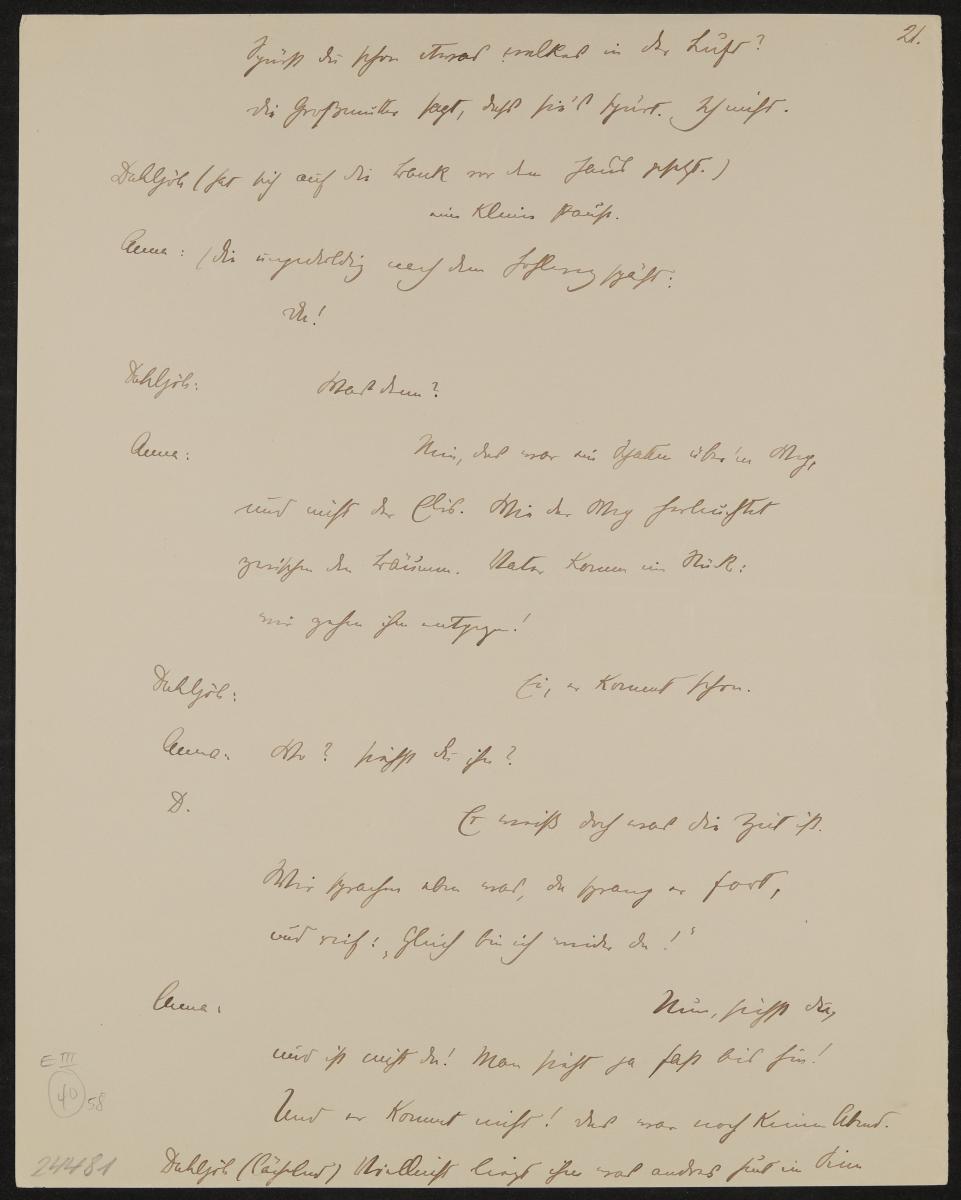 21.
Spürst du schon etwas welkes in der Luft?
die Großmutter sagt, dass sie's spürt. Ich nicht.
Dahljöh (hat sich auf die Bank vor dem Haus gesetzt.)
eine kleine Pause.
Anna: (die ungeduldig nach dem Hohlweg späht:
Du!
Dahljöh: Was denn?
Anna: Nein, das war ein Schatten über'm Weg,
und nicht der Elis. Wie der Weg herleuchtet
zwischen den Bäumen. Vater komm ein Stück:
wir gehen ihm entgegen!
Dahljöh: Ei, er kommt schon.
Anna: Wo? siehst du ihn?
D. Er weiß doch was die Zeit ist.
Wir sprachen eben was, da sprang er fort,
und rief: „Gleich bin ich wieder da!"
Anna: Nun, siehst du,
und ist nicht da! Man sieht ja fast bis hin!
Und er kommt nicht! das war noch keinen Abend.
Dahljöh (lächelnd) Vielleicht liegt ihm was anders heut im Sinn
E III
40
58
24481